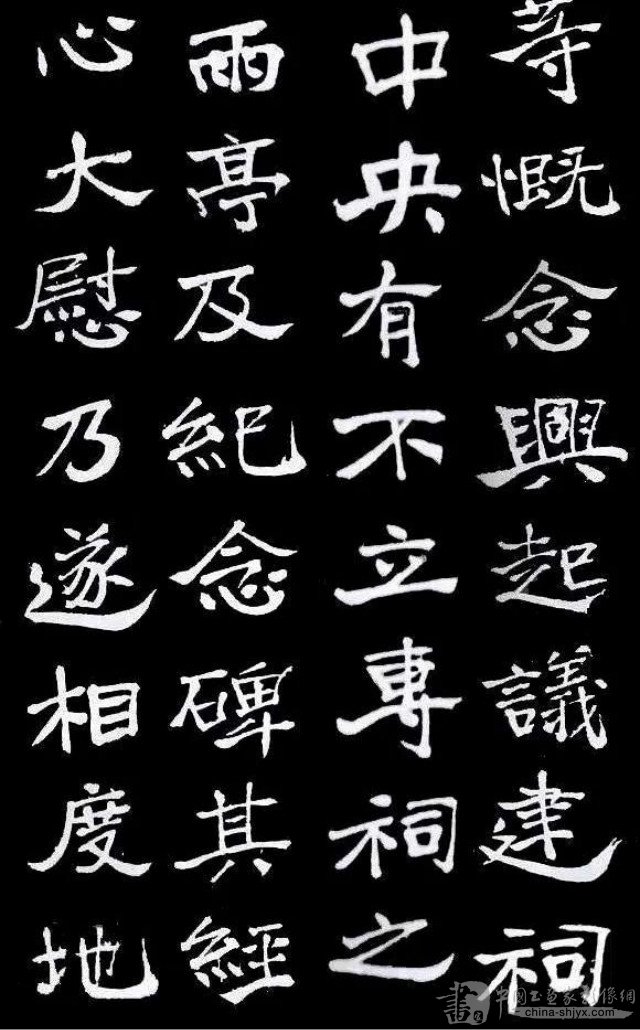 等慨念興起議建祠
中央有不立專祠之
雨亭及紀念碑其經
心大慰乃遂相度地
書 中國書畫家影像網
www.china-shjyx.com